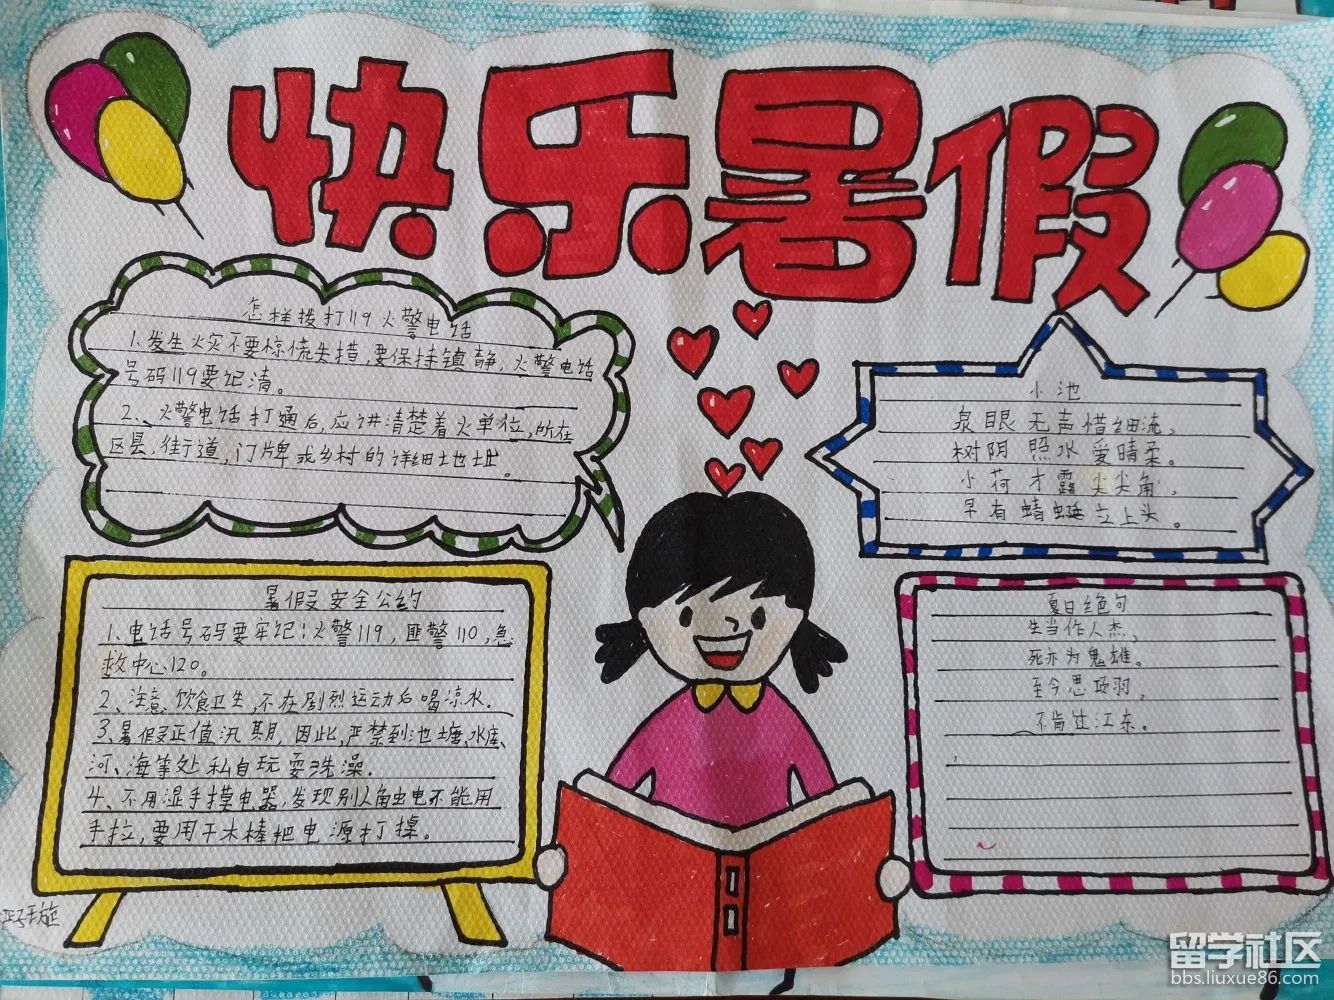 快乐暑假
怎样拨打119火警电话
1.发生火灾不要惊慌失措,要保持镇静,火警电话
号码119要记清。
2、火警电话打通后,应讲清楚着火单位,所在
区县、街行道,门牌或乡村的详细地址。
小池
泉眼无声惜细流,
树阴照水爱晴柔。
小荷才露尖尖角,
早有蜻蜓立上头。
暑假安全公约
1、电话号码要牢记:火警119,匪警110,急
救中心120。
2、注意饮食卫生,不在剧烈运动后喝凉水.
3、暑假正值汛期,因此,严禁到池塘、水库、
河、海等处私自玩耍洗澡.
4、不用湿手摸电器,发现别人触电不能用
手拉,要用干木棒把电源打掉。
夏日绝句
生当作人杰,
死亦为鬼雄。
至今思项羽,
不肯过江东。
留学社区
bbs.liuxue86.com